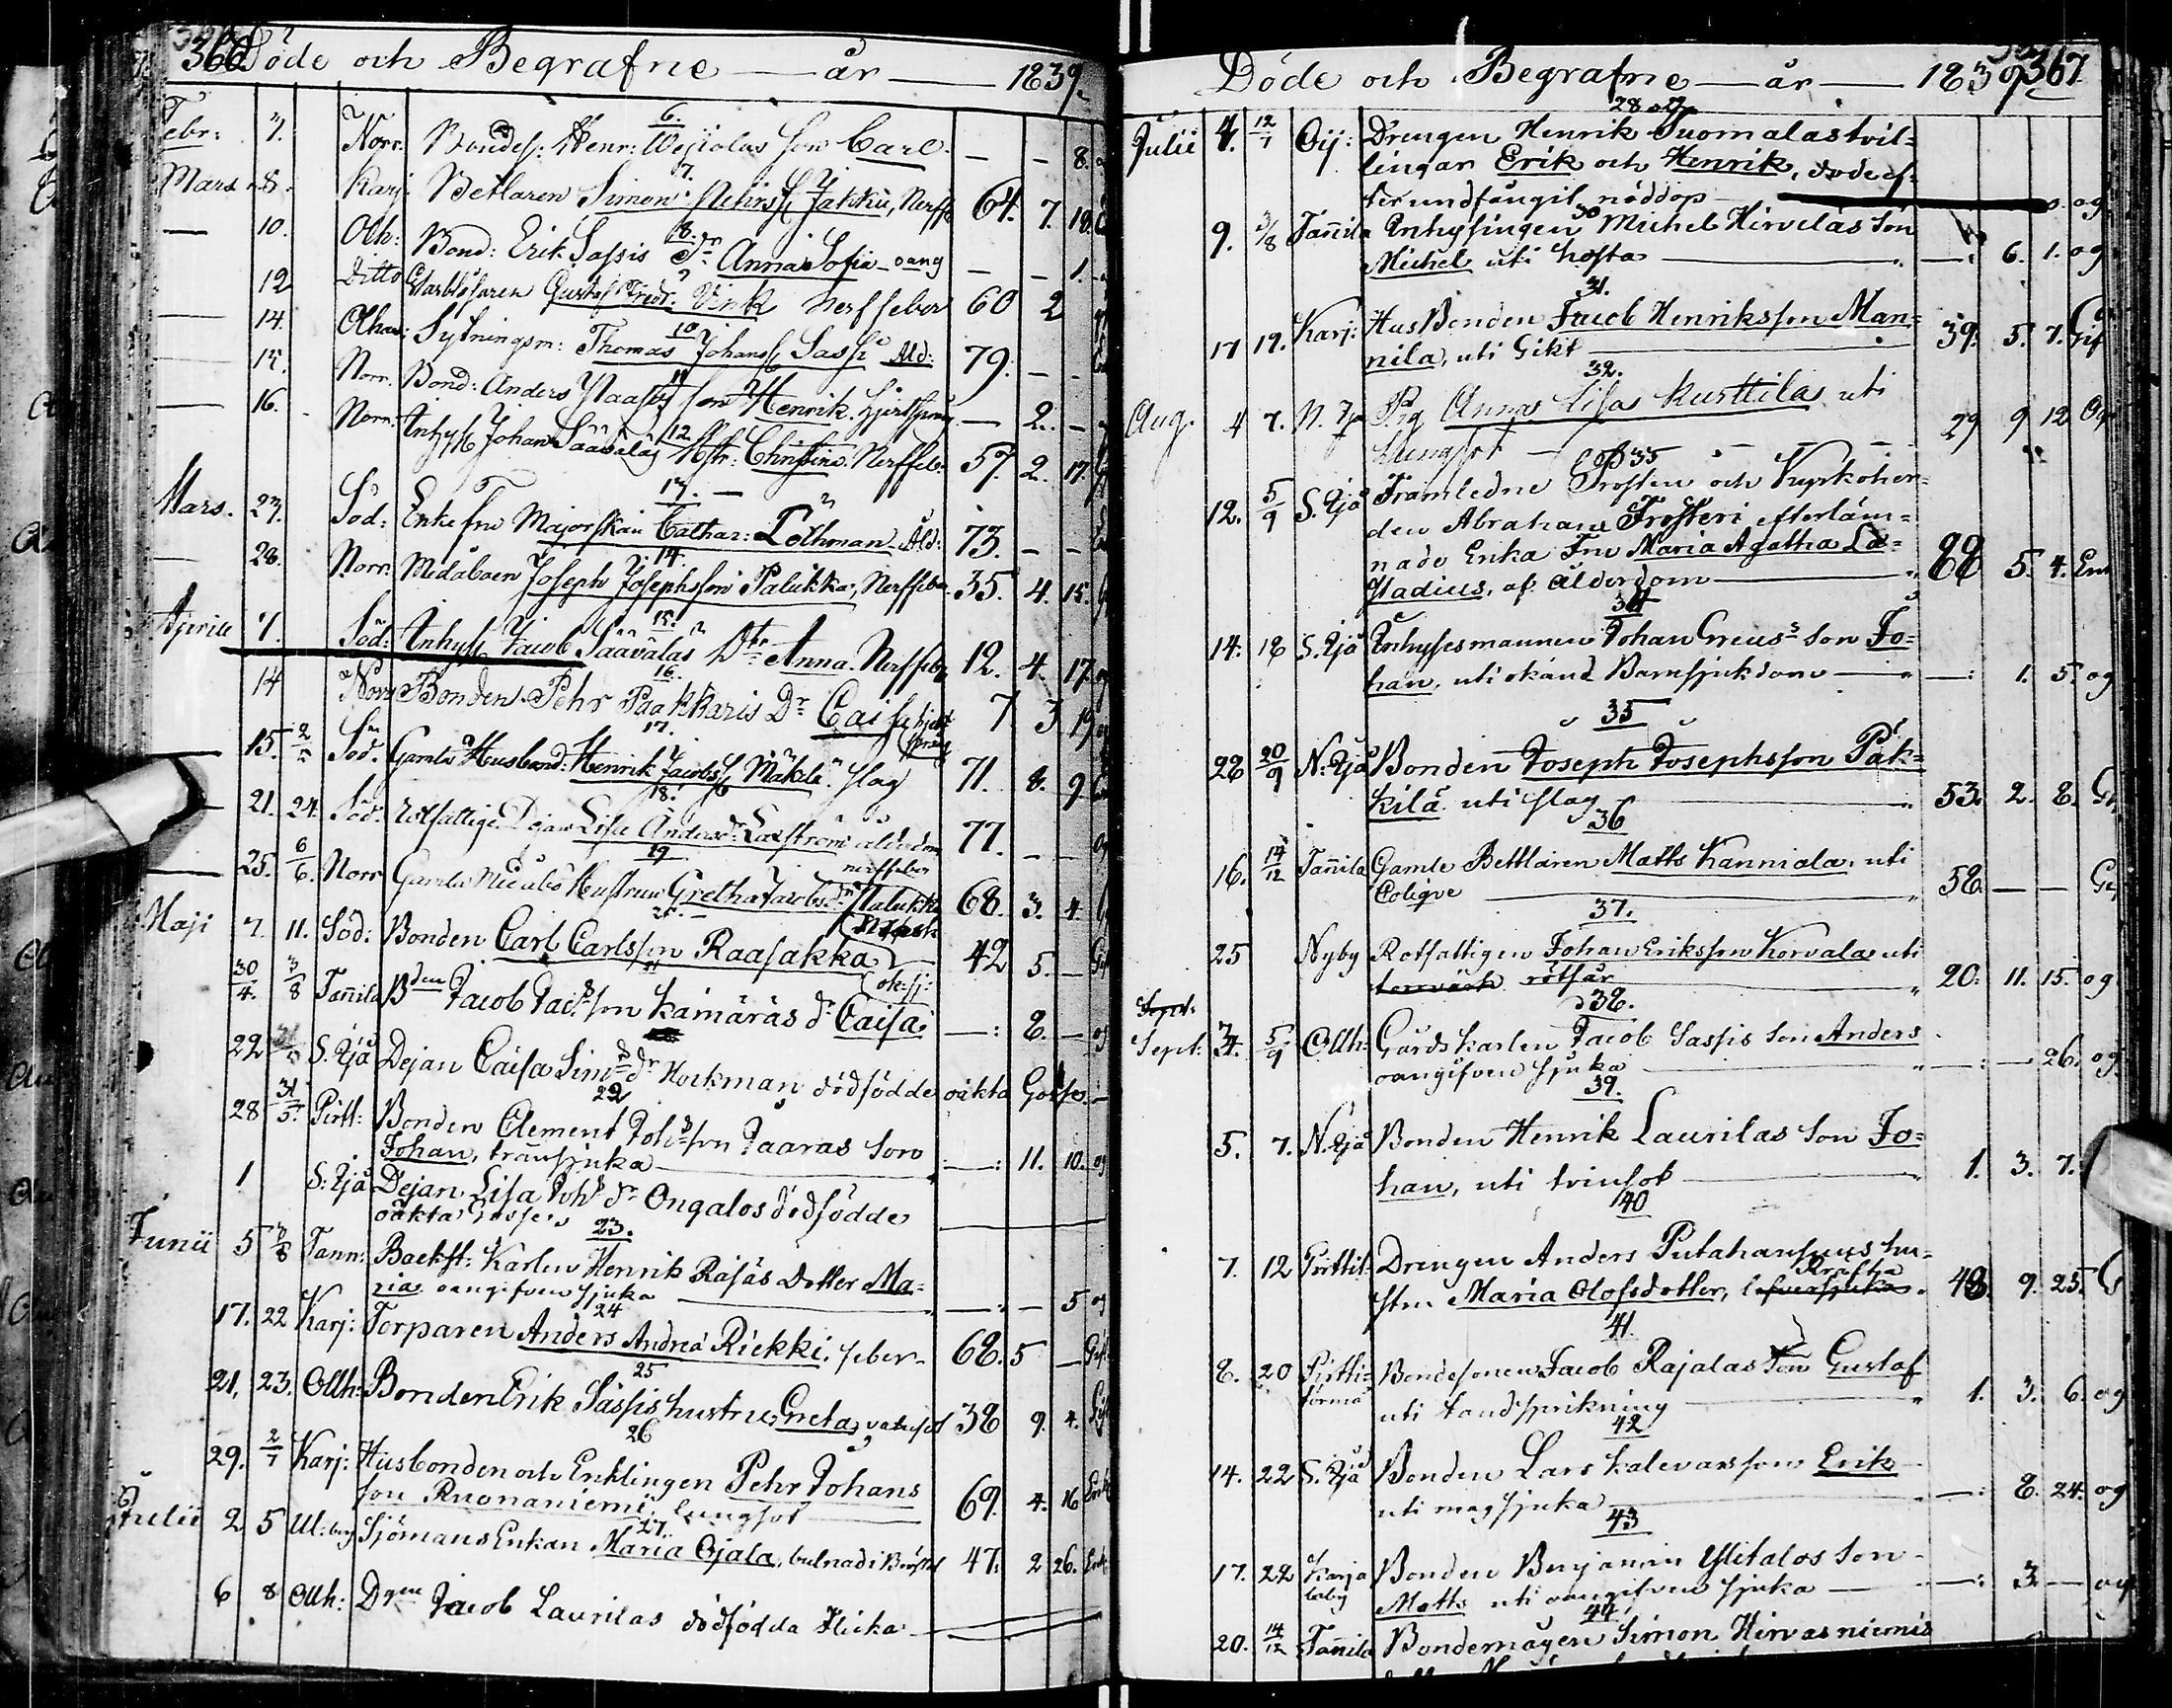 366 Döde och Begrafne — år — 1839.
6.
Febr: 7. Norr. Bondes: Henr: Wejiolas son Carl. — — 8.
7.
Mars 8. Karj. Betlaren Simon Jakku, Nerff 64. 7. 18.
8.
— 10. Olh: Bond: Erik Sassis Dr Anna Sofia oang — — 1.
12 Ditto Gustaf Fredr: Nerffeber 60 2
10
— 14. Olhav: Sytningsm: Thomas Johanss Sassi Ald: 79. — —
11
— 15. Norr. Bond: Anders son Henrik. — 2. —
12
— 16. Norr. Inhys Johan Säävälas Hstr: Christina. Nerffeb: 57. 2. 17.
13. —
Mars. 23. Söd: Enkefru Majorskan Cathar: Lothman Ald: 73. — —
14.
— 28. Norr. Joseph Josephsson Palukka, Nerffeber 35. 4. 15.
15.
Aprill 7. Söd: Inhys Jacob Säävälas Dtr Anna. Nerffeb 12. 4. 17.
16.
14 Norr Bonden Pehr Paakkaris Dr Caisa 7 3 19
17.
— 15. 2/5 Söd. Gamla Husbond: Henrik Jacobss Mäkelä slag 71. 8. 9
18.
— 21. 24. Söd. Rotfattige Dejan Lisa Andersdr Laxström ålderdom 77. — —
19 nerffeber
— 25. 6/6. Norr Gamla Hustrun Gretha Jacobsdr Palukka 68. 3. 4.
20. —
Maji 7. 11. Söd: Bonden Carl Carlsson Raasakka 42 5. —
21
30/4. 3/8 Tañila Bden Jacob Jac:son Kämäräs dr Caisa —: 8. —
22 31/5 S. Ijå Dejan Caisa Sims dr Hockman dödfödde oäkta Gosse. —
22
28 31/5. Pirtt: Bonden Clement Johsson Jaaras son
Johan, transjuka — —: 11. 10. og
1 S: Ijå Dejan Lisa Johs dr Ongalos dödfödde
oäkta Gosse
23.
Junii 5 3/8 Tann: Backst: Karlen Henrik Räfäs Dotter Ma=
ria oangifven sjuka — —: — 5 og
24
17. 22 Karj: Torparen Anders Andreä Riekki, feber. 68. 5 —
25
21, 23. Ollh: Bonden Erik Sassis hustru Greta, vatusot 38 9. 4.
26
29. 2/7 Karj: Husbonden och Enklingen Pehr Johans
son Ruonaniemi, lungsot 69. 4. 16 Enk
27.
Julii 2 5 Ul: borg Sjömans Enkan Maria Ojala, bulnad i Bröstet 47. 2 26. Enk
6 8 Ollh: Dgen Jacob Laurilas dödfödda Flicka —
Döde och Begrafne — år — 1839. 367
28 o 29
Julii 4. 12/7 Oij: Drengen Henrik Suomalas tvil=
lingar Erik och Henrik, dödde ef=
ter undfångit nöddop — o. og
30
9. 3/8 Tañila Inhysingen Michel Hirvelas son
Michel uti hosta — —: 6. 1. og
31.
17 19. Karj: Husbonden Jacob Henriksson Man=
nila, uti Gikt — 39. 5. 7. Gif
32.
Aug. 4 7. N. Ijå Pig Anna Lisa Kusttila uti
lungsot — — — 29 9 12 Og
33
12. 5/9 S. Ijå Framledne Prosten och Kyrkoher=
den Abraham Frosteri efterläm=
nade Enka Fru Maria Agatha Læ=
stadius, af ålderdom — 88 5. 4. Enk
34
14: 18 S. Ijå Inhysesmannen Johan Greus's son Jo=
han, uti okänd Barnsjukdom — —: 1. 5. og
35
28 20/9 N: Ijå Bonden Joseph Josephsson Päk=
kilä uti slag — 53. 2. 8.
36
16. 14/12 Tañila Gamle Bettlaren Matts Kanniala, uti
Colique — 58. — —
37.
25 Nyby Rotfattigen Johan Eriksson Korvala uti
torrvärk rötsår 20. 11. 15. og
Sept: 38.
Sept: 3. 5/9 Ollh: Gårdskarlen Jacob Sassis son Anders
oangifven sjuka — —: — 26. og
39.
5. 7. N. Ijå Bonden Henrik Laurilas son Jo=
han, uti tvinsot — 1. 3. 7.
40
7. 12 Pirttit: Drengen Anders Putahansuus hu=
stru Maria Olofsdotter, lefversjuka Kräfta 48. 9. 25. G
41.
8. 20 Pirtti= Bondesonen Jacob Rajalas son Gustaf
törmä uti tandsprikning — 1. 3. 6. og
42
14. 22 S. Ijå Bonden Lars Kalevas son Erik
uti magsjuka — —: 8. 24. og
43
17. 22 Karja Bonden Benjamin Ylitalos son
laby Matts uti oangifven sjuka — —: 3. — og
44.
20. 14/12 Tañila Bondemågen Simon Hirvasniemis